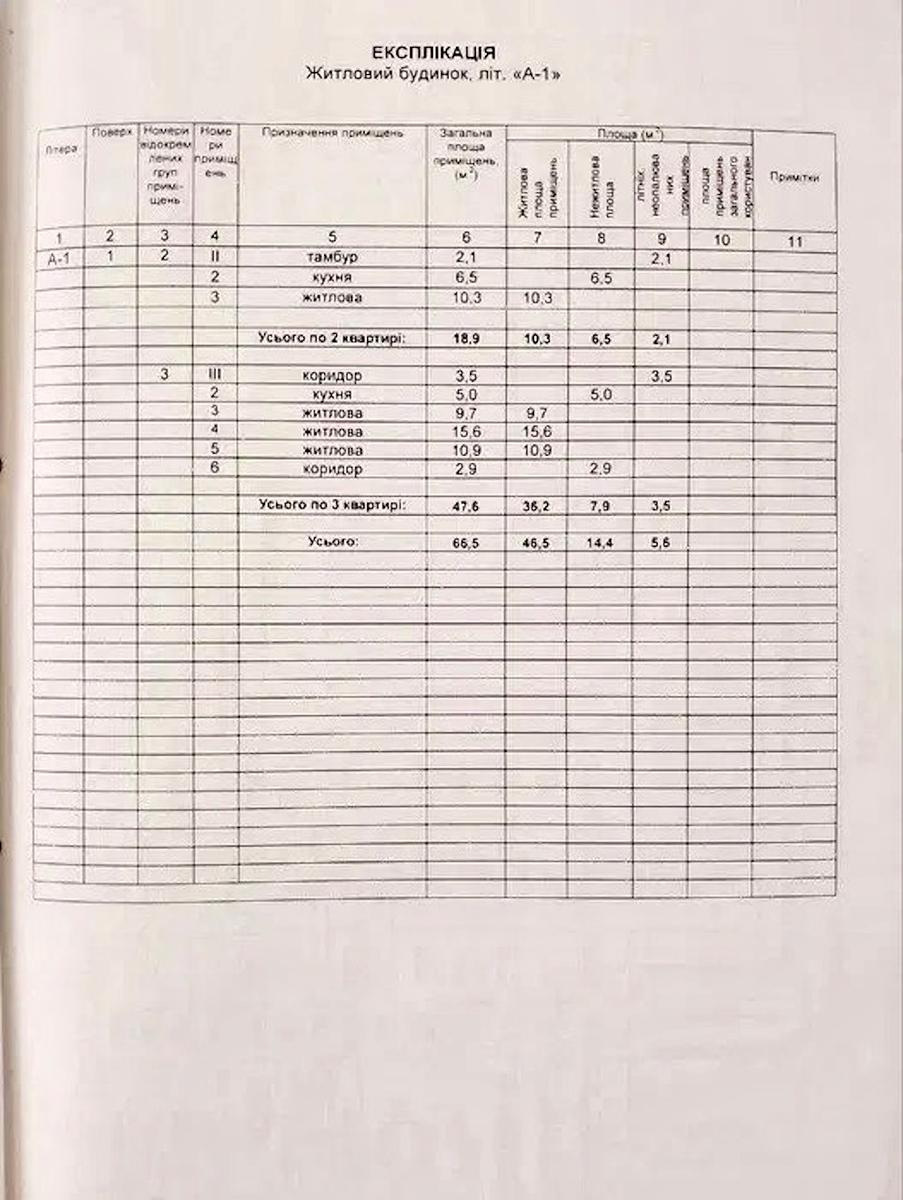 ЕКСПЛІКАЦІЯ
Житловий будинок, літ. «А-1»
Літера Поверх Номери відокрем лених груп примі- щень Номе ри приміщ ень Призначення приміщень Загальна площа приміщень, (м²) Площа (м²) Примітки
Житлова площа приміщень Нежитлова площа літніх неопалюва них приміщень площа приміщень загального користуван
1 2 3 4 5 6 7 8 9 10 11
А-1 1 2 II тамбур 2,1 2,1
2 кухня 6,5 6,5
3 житлова 10,3 10,3
Усього по 2 квартирі: 18,9 10,3 6,5 2,1
3 III коридор 3,5 3,5
2 кухня 5,0 5,0
3 житлова 9,7 9,7
4 житлова 15,6 15,6
5 житлова 10,9 10,9
6 коридор 2,9 2,9
Усього по 3 квартирі: 47,6 36,2 7,9 3,5
Усього: 66,5 46,5 14,4 5,6